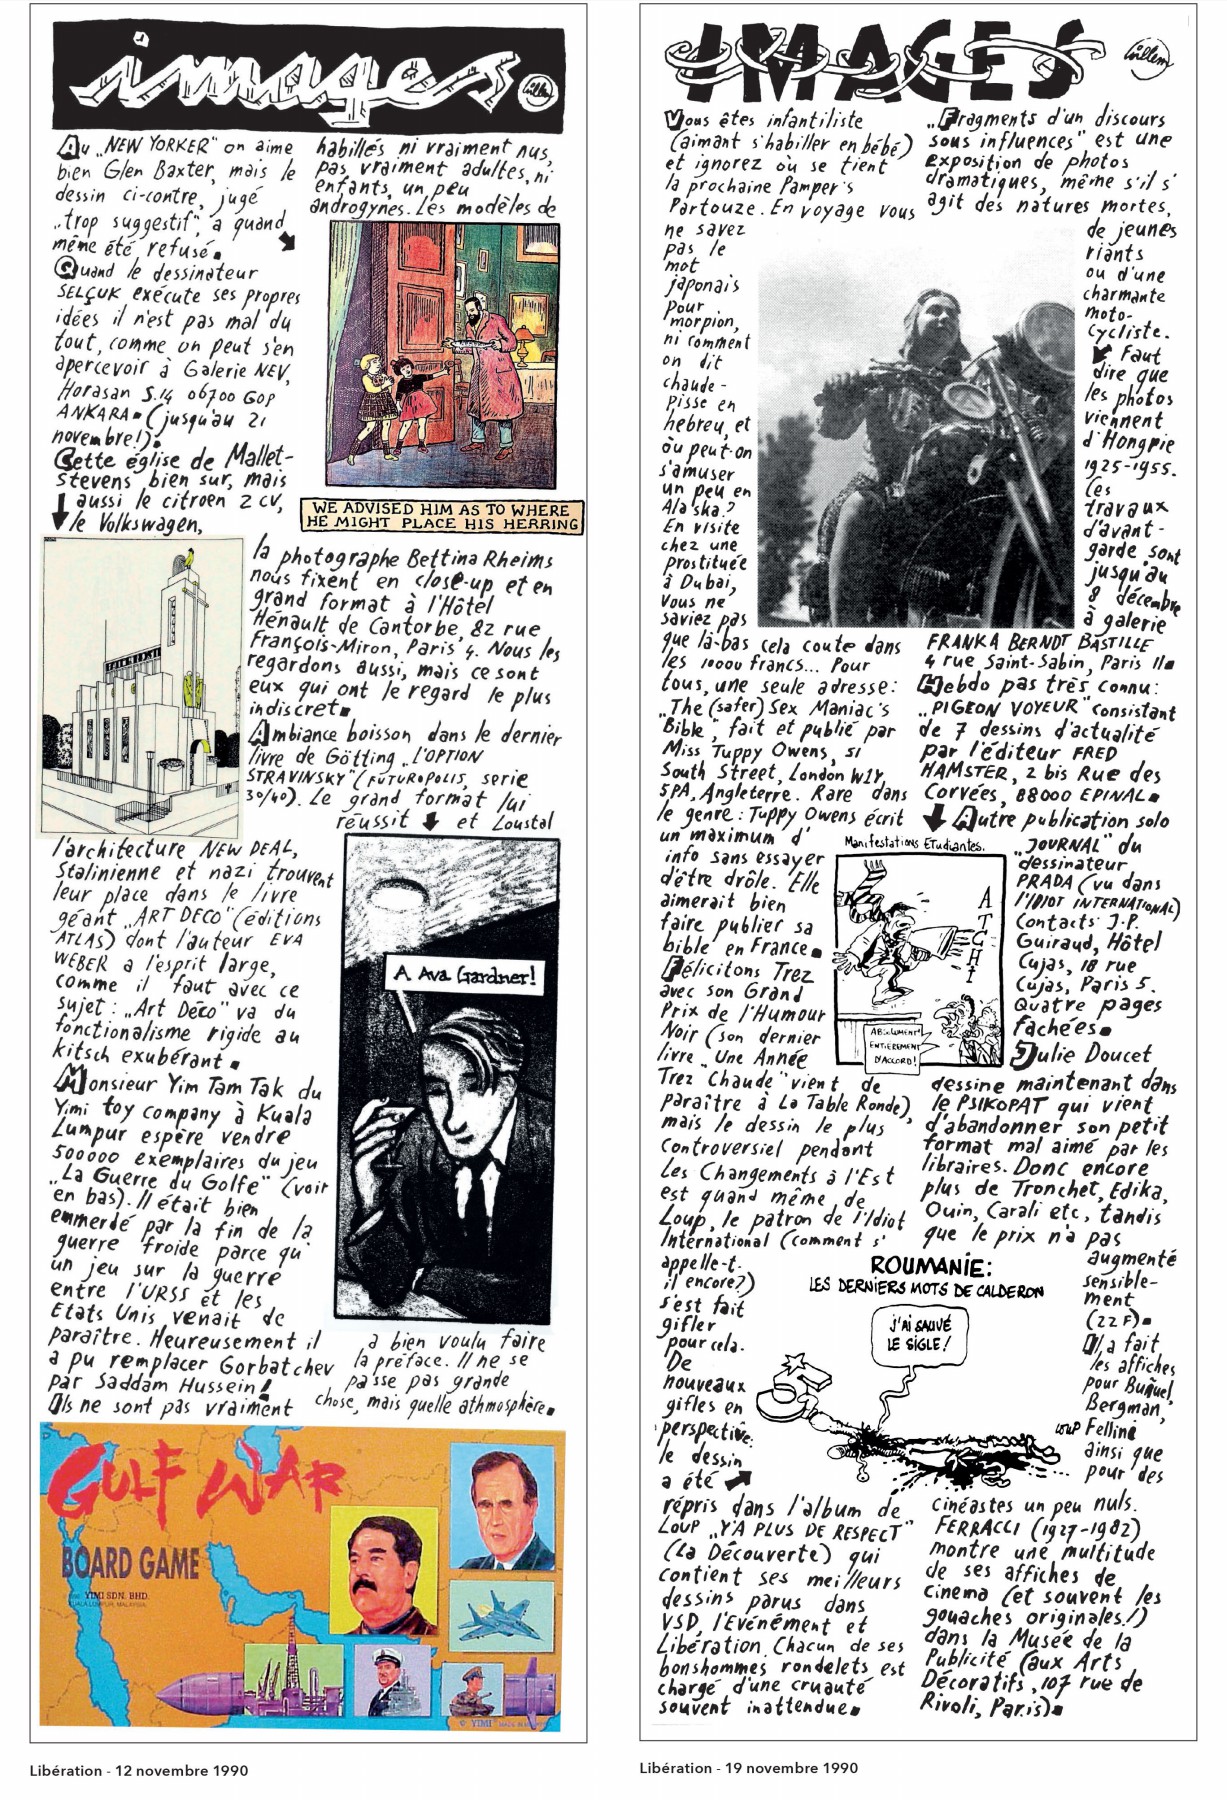 images
Willem
Au „NEW YORKER" on aime
bien Glen Baxter, mais le
dessin ci-contre, jugé
„trop suggestif", a quand
même été refusé.
Quand le dessinateur
SELÇUK exécute ses propres
idées il n'est pas mal du
tout, comme on peut s'en
apercevoir à Galerie NEV,
Horasan S.14 06700 GOP
ANKARA. (jusqu'au 21
novembre!).
Cette église de Mallet-
Stevens bien sur, mais
aussi le citroen 2 CV,
le Volkswagen,
l'architecture NEW DEAL,
Stalinienne et nazi trouvent
leur place dans le livre
géant „ART DECO" (éditions
ATLAS) dont l'auteur EVA
WEBER a l'esprit large,
comme il faut avec ce
sujet: „Art Déco" va du
fonctionalisme rigide au
kitsch exubérant.
Monsieur Yim Tam Tak du
Yimi toy company à Kuala
Lumpur espère vendre
500000 exemplaires du jeu
„La Guerre du Golfe" (voir
en bas). Il était bien
emmerdé par la fin de la
guerre froide parce qu'
un jeu sur la guerre
entre l'URSS et les
Etats Unis venait de
paraître. Heureusement il
a pu remplacer Gorbatchev
par Saddam Hussein!
Ils ne sont pas vraiment
habillés ni vraiment nus,
pas vraiment adultes, ni
enfants, un peu
androgynes. Les modèles de
WE ADVISED HIM AS TO WHERE
HE MIGHT PLACE HIS HERRING
la photographe Bettina Rheims
nous fixent en close-up et en
grand format à l'Hôtel
Hénault de Cantorbe, 82 rue
François-Miron, Paris 4. Nous les
regardons aussi, mais ce sont
eux qui ont le regard le plus
indiscret.
Ambiance boisson dans le dernier
livre de Götting „L'OPTION
STRAVINSKY" (FUTUROPOLIS, serie
30/40). Le grand format lui
réussit et Loustal
A Ava Gardner!
a bien voulu faire
la préface. Il ne se
passe pas grande
chose, mais quelle athmosphère.
GULF WAR
BOARD GAME
YIMI SDN. BHD.
KUALA LUMPUR, MALAYSIA.
© YIMI
Libération - 12 novembre 1990
IMAGES
Willem
Vous êtes infantiliste
(aimant s'habiller en bébé)
et ignorez où se tient
la prochaine Pamper's
Partouze. En voyage vous
ne savez
pas le
mot
japonais
pour
morpion,
ni comment
on dit
chaude-
pisse en
hebreu, et
où peut-on
s'amuser
un peu en
Alaska?
En visite
chez une
prostituée
à Dubai,
vous ne
saviez pas
que là-bas cela coute dans
les 10000 francs... Pour
tous, une seule adresse:
„The (safer) Sex Maniac's
Bible", fait et publié par
Miss Tuppy Owens, 51
South Street, London W1Y,
5PA, Angleterre. Rare dans
le genre: Tuppy Owens écrit
un maximum d'
info sans essayer
d'être drôle. Elle
aimerait bien
faire publier sa
bible en France.
Félicitons Trez
avec son Grand
Prix de l'Humour
Noir (son dernier
livre „Une Année
Trez Chaude" vient de
paraître à La Table Ronde),
mais le dessin le plus
controversiel pendant
Les Changements à l'Est
est quand même de
Loup, le patron de l'Idiot
International (comment s'
appelle-t-
il encore?)
s'est fait
gifler
pour cela.
De
nouveaux
gifles en
perspective:
le dessin
a été
répris dans l'album de
LOUP „Y'A PLUS DE RESPECT"
(La Découverte) qui
contient ses meilleurs
dessins parus dans
VSD, l'Evénement et
Libération. Chacun de ses
bonshommes rondelets est
chargé d'une cruauté
souvent inattendue.
„Fragments d'un discours
sous influences" est une
exposition de photos
dramatiques, même s'il s'
agit des natures mortes,
de jeunes
riants
ou d'une
charmante
moto-
cycliste.
Faut
dire que
les photos
viennent
d'Hongrie
1925-1955.
Ces
travaux
d'avant-
garde sont
jusqu'au
8 décembre
à galerie
FRANKA BERNDT BASTILLE
4 rue Saint-Sabin, Paris 11.
Hebdo pas très connu:
„PIGEON VOYEUR" consistant
de 7 dessins d'actualité
par l'éditeur FRED
HAMSTER, 2 bis Rue des
Corvées, 88000 EPINAL.
Autre publication solo
Manifestations Etudiantes.
ATCHI
ABSOLUMENT
ENTIEREMENT
D'ACCORD!
„JOURNAL" du
dessinateur
PRADA (vu dans
l'IDIOT INTERNATIONAL)
Contacts: J.P.
Guiraud, Hôtel
Cujas, 18 rue
Cujas, Paris 5.
Quatre pages
fâchées.
Julie Doucet
dessine maintenant dans
le PSIKOPAT qui vient
d'abandonner son petit
format mal aimé par les
libraires. Donc encore
plus de Tronchet, Edika,
Ouin, Carali etc, tandis
que le prix n'a pas
augmenté
sensible-
ment
(22 F).
Il a fait
les affiches
pour Buñuel,
Bergman,
Fellini
ainsi que
pour des
ROUMANIE:
LES DERNIERS MOTS DE CALDERON
J'AI SAUVÉ
LE SIGLE!
LOUP
cinéastes un peu nuls.
FERRACCI (1927-1982)
montre une multitude
de ses affiches de
cinema (et souvent les
gouaches originales!)
dans la Musée de la
Publicité (aux Arts
Décoratifs, 107 rue de
Rivoli, Paris).
Libération - 19 novembre 1990